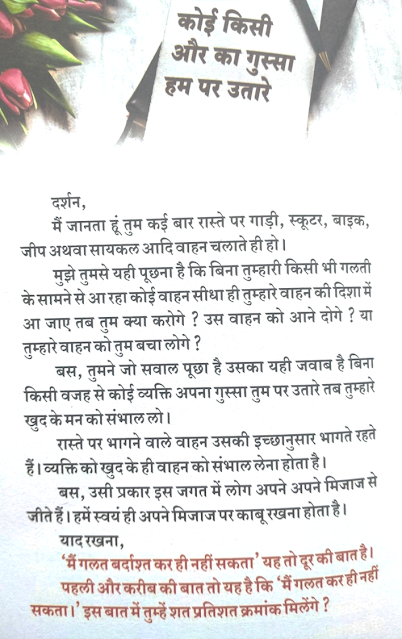 कोई किसी
और का गुस्सा
हम पर उतारे
दर्शन,
मैं जानता हूं तुम कई बार रास्ते पर गाड़ी, स्कूटर, बाइक,
जीप अथवा सायकल आदि वाहन चलाते ही हो।
मुझे तुमसे यही पूछना है कि बिना तुम्हारी किसी भी गलती
के सामने से आ रहा कोई वाहन सीधा ही तुम्हारे वाहन की दिशा में
आ जाए तब तुम क्या करोगे ? उस वाहन को आने दोगे ? या
तुम्हारे वाहन को तुम बचा लोगे ?
बस, तुमने जो सवाल पूछा है उसका यही जवाब है बिना
किसी वजह से कोई व्यक्ति अपना गुस्सा तुम पर उतारे तब तुम्हारे
खुद के मन को संभाल लो।
रास्ते पर भागने वाले वाहन उसकी इच्छानुसार भागते रहते
हैं। व्यक्ति को खुद के ही वाहन को संभाल लेना होता है।
बस, उसी प्रकार इस जगत में लोग अपने अपने मिजाज से
जीते हैं। हमें स्वयं ही अपने मिजाज पर काबू रखना होता है।
याद रखना,
'मैं गलत बर्दाश्त कर ही नहीं सकता' यह तो दूर की बात है।
पहली और करीब की बात तो यह है कि 'मैं गलत कर ही नहीं
सकता।' इस बात में तुम्हें शत प्रतिशत क्रमांक मिलेंगे ?